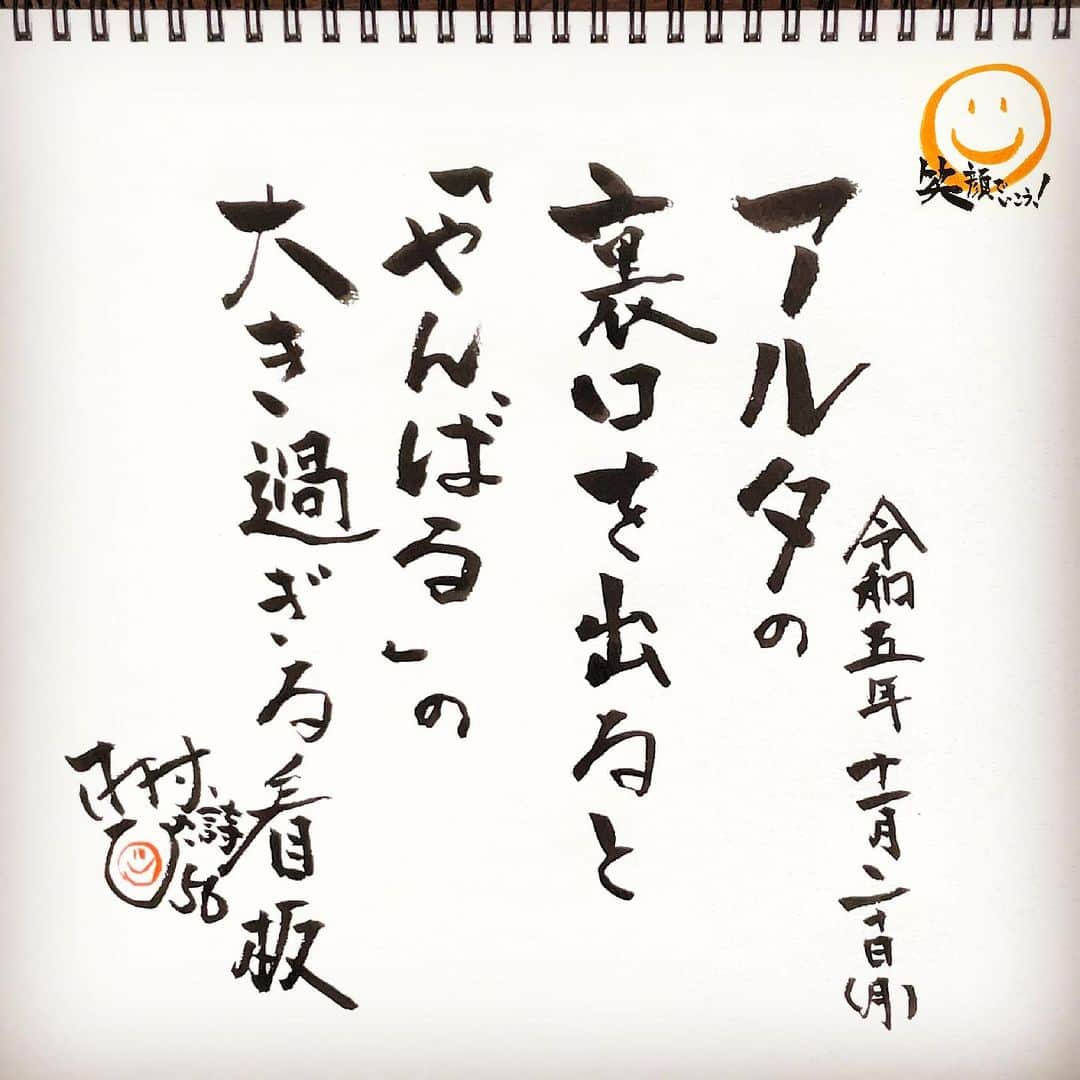 笑顔でいこう!
令和五年十一月二十日(月)
アルタの
裏口を出ると
「やんばる」の
大き過ぎる看板
村
詩
56